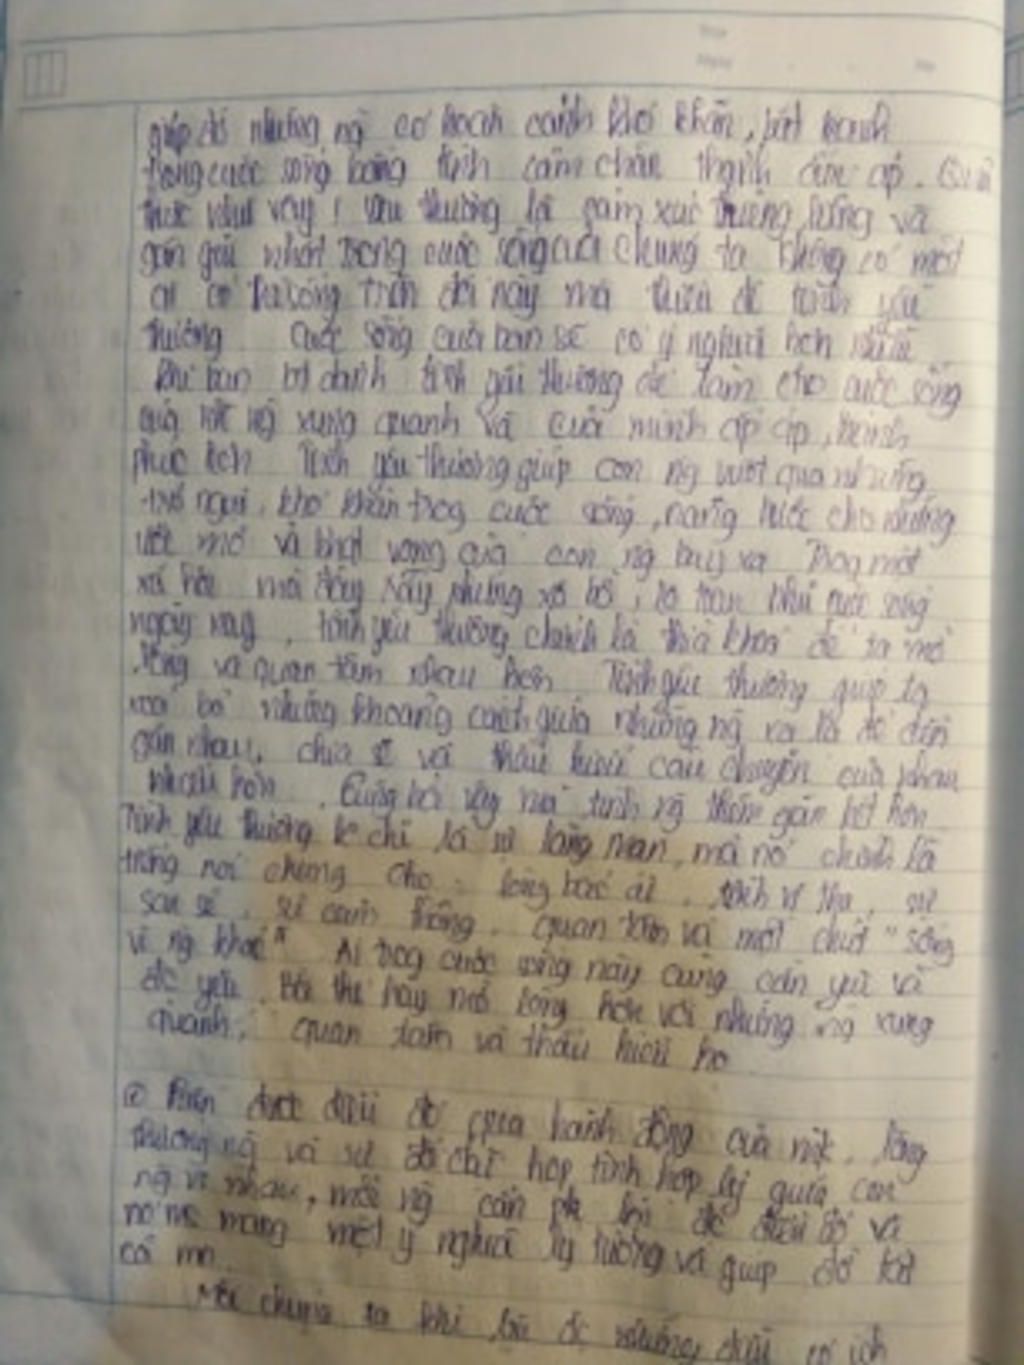 giúp đỡ những ng có hoàn cảnh khó khăn, bất hạnh
trong cuộc sống bằng tình cảm chân thành ấm áp. Quả
thực như vậy! Yêu thương là cảm xúc thiêng liêng và
gần gũi nhất trong cuộc sống của chúng ta không có một
ai có trên đời này mà thiếu đi tình yêu
thương cuộc sống của bạn sẽ có ý nghĩa hơn
khi bạn dành tình yêu thương để làm cho cuộc sống
của ng xung quanh và của mình ấm áp, hạnh
phúc hơn Tình yêu thương giúp con ng vượt qua những
trở ngại, khó khăn trog cuộc sống, cho những
ước mơ và khát vọng của con ng bay xa Trog một
xã hội mà đầy xô bồ, lo toan như cuộc sống
ngày nay, tình yêu thương chính là chìa khoá để ta mở
lòng và quan tâm nhau hơn Tình yêu thương giúp ta
xoá bỏ những khoảng cách giữa những ng xa lạ để đến
gần nhau, chia sẻ và thấu hiểu câu chuyện của nhau
nhiều hơn. Cũng bởi vậy mà tình ng thêm gắn kết hơn
Tình yêu thương k chỉ là sự lãng mạn, mà nó chính là
chung cho lòng bác ái, vị tha, sự
san sẻ, sự cảm thông, quan tâm và một chút "sống
vì ng khác" Ai trog cuộc sống này cũng cần yêu và
đc yêu. Bởi thế hãy mở lòng hơn với những ng xung
quanh, quan tâm và thấu hiểu họ
được điều đó qua hành động của lòng
thương ng và sự hợp tình hợp lý giữa con
ng vì nhau, mỗi ng cần điều đó và
mang một ý nghĩa lý tưởng và giúp đỡ tất
cả mn
chúng ta khi những điều có ích